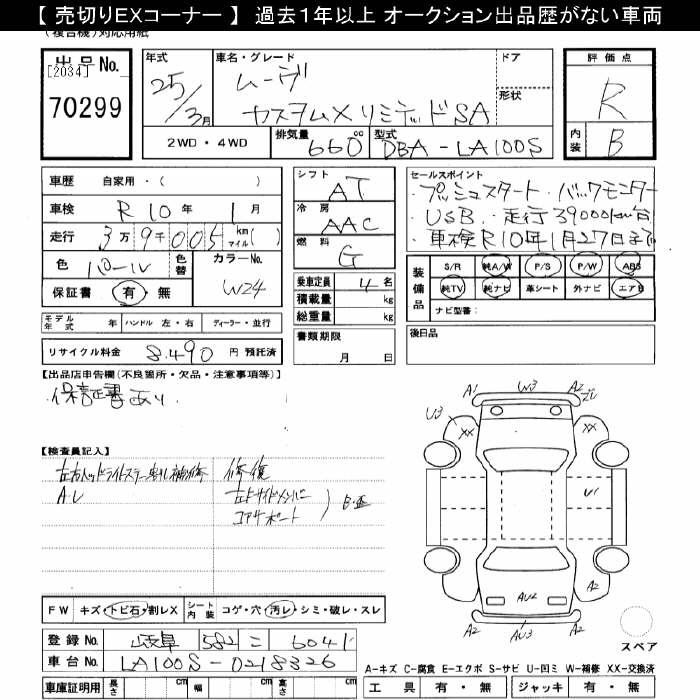 【 売切りEXコーナー 】 過去1年以上 オークション出品歴がない車両
(複合機)対応用紙
出品No.
[2034]
70299
年式
25/3月
車名・グレード
ムーヴ
カスタムX リミテッドSA
ドア
形状
2WD・4WD
排気量
660cc
型式
DBA-LA100S
評価点
R
内装
B
車歴 自家用・( )
車検 R10年 1月
走行 3万9千005 km マイル( )
色 パール
色替
カラーNo.
W24
保証書 有・無
モデル年式 年 ハンドル 左・右 ディーラー・並行
リサイクル料金 8,490 円 預託済
シフト
AT
冷房
AAC
燃料
G
乗車定員 4名
積載量 kg
総重量 kg
書類期限
月 日
セールスポイント
・プッシュスタート・バックモニター
・USB・走行39000km台
・車検R10年1月27日まで
装備品
S/R 純A/W P/S P/W ABS
純TV 純ナビ 革シート 外ナビ エアB
ナビ型番:
後日品
【出品店申告欄(不良箇所・欠品・注意事項等)】
・保証書あり
【検査員記入】
左右ヘッドライトステー割れ補修
AU
修復
コアサポート
A1 W3 A2
U3 XX XX
U1
A2 AU2 A2
A2 AU3 A2
スペア
FW キズ・トビ石・割レX
シート内装 コゲ・穴・汚レ・シミ・破レ・スレ
登録No. 岐阜 582 ニ 6041
車台No. LA100S-0218326
車庫証明用 長さ cm 幅 cm 高さ cm
A-キズ C-腐食 E-エクボ S-サビ U-凹ミ W-補修 XX-交換済
工具 有・無 ジャッキ 有・無